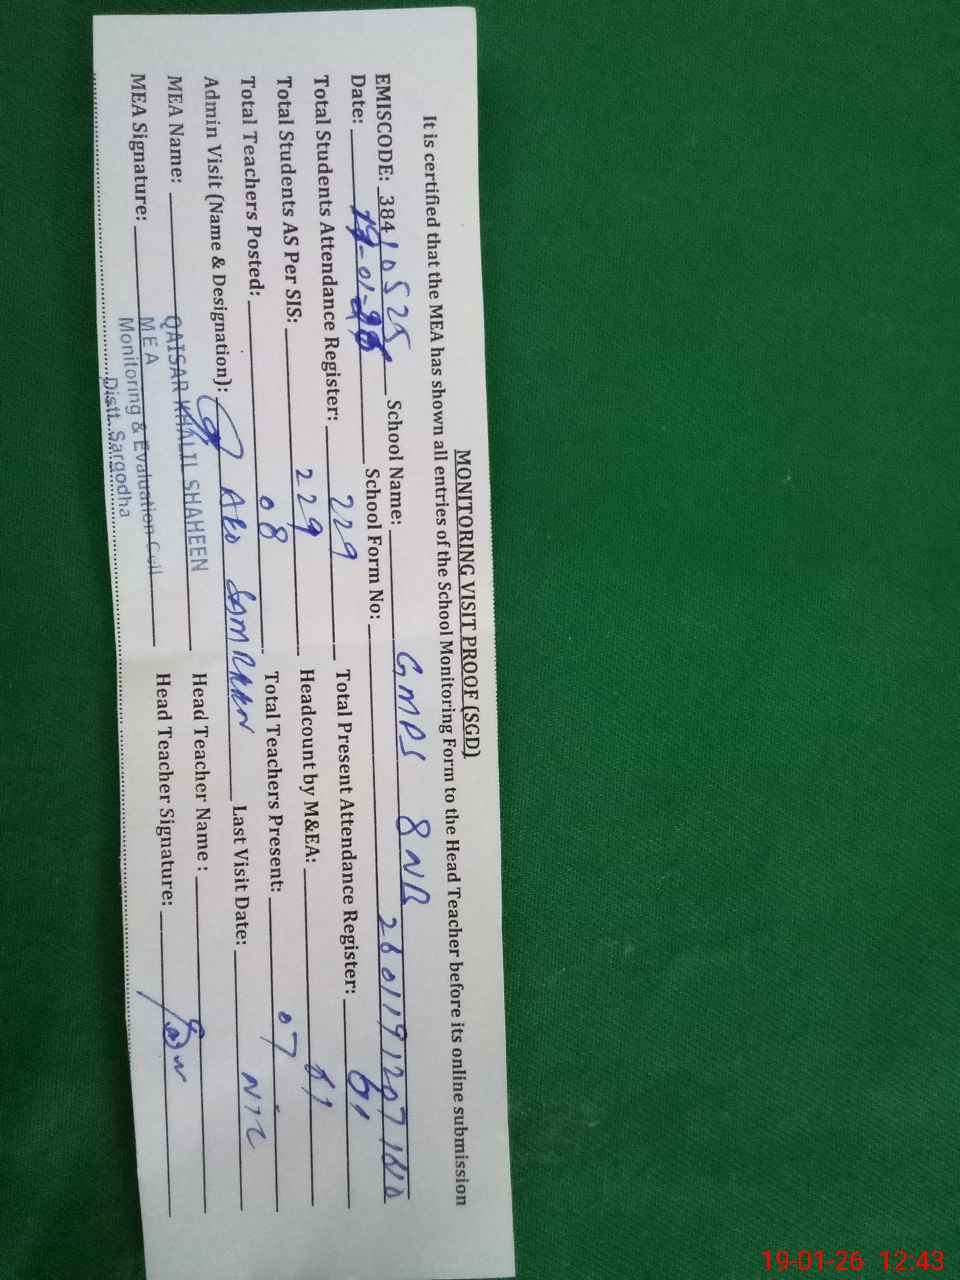 MONITORING VISIT PROOF (SGD)
It is certified that the MEA has shown all entries of the School Monitoring Form to the Head Teacher before its online submission
EMISCODE: 38410525 School Name: GMPS 8 NB
Date: 19-01-26 School Form No:
Total Students Attendance Register: 229 Total Present Attendance Register: 61
Total Students AS Per SIS: 229 Headcount by M&EA: 61
Total Teachers Posted: 08 Total Teachers Present: 07
Admin Visit (Name & Designation): AEO Last Visit Date:
MEA Name: QAISAR KHALIL SHAHEEN Head Teacher Name :
MEA Signature: MEA Head Teacher Signature:
Monitoring & Evaluation Cell
Distt. Sargodha
19-01-26 12:43